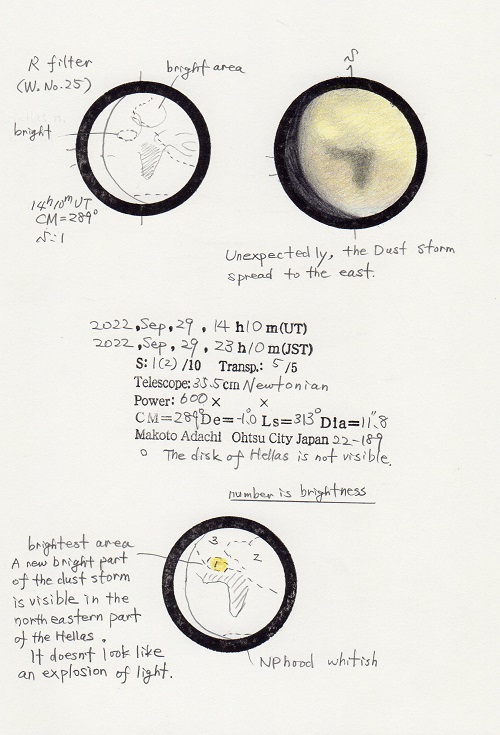 R filter
(W.No.25)
bright area
bright
14h10m UT
CM=289°
S
Unexpectedly, the Dust storm
spread to the east.
2022, Sep, 29, 14 h10 m(UT)
2022, Sep, 29, 23 h10 m(JST)
S: 1(2) /10 Transp.: 5 /5
Telescope: 35.5cm Newtonian
Power: 600 × ×
CM=289°De=-1.0 Ls=313°Dia=11".8
Makoto Adachi Ohtsu City Japan 22-189
○ The disk of Hellas is not visible.
number is brightness
brightest area
A new bright part
of the dust storm
is visible in the
north eastern part
of the Hellas.
It doesn't look like
an explosion of light.
3
2
1
NPhood whitish